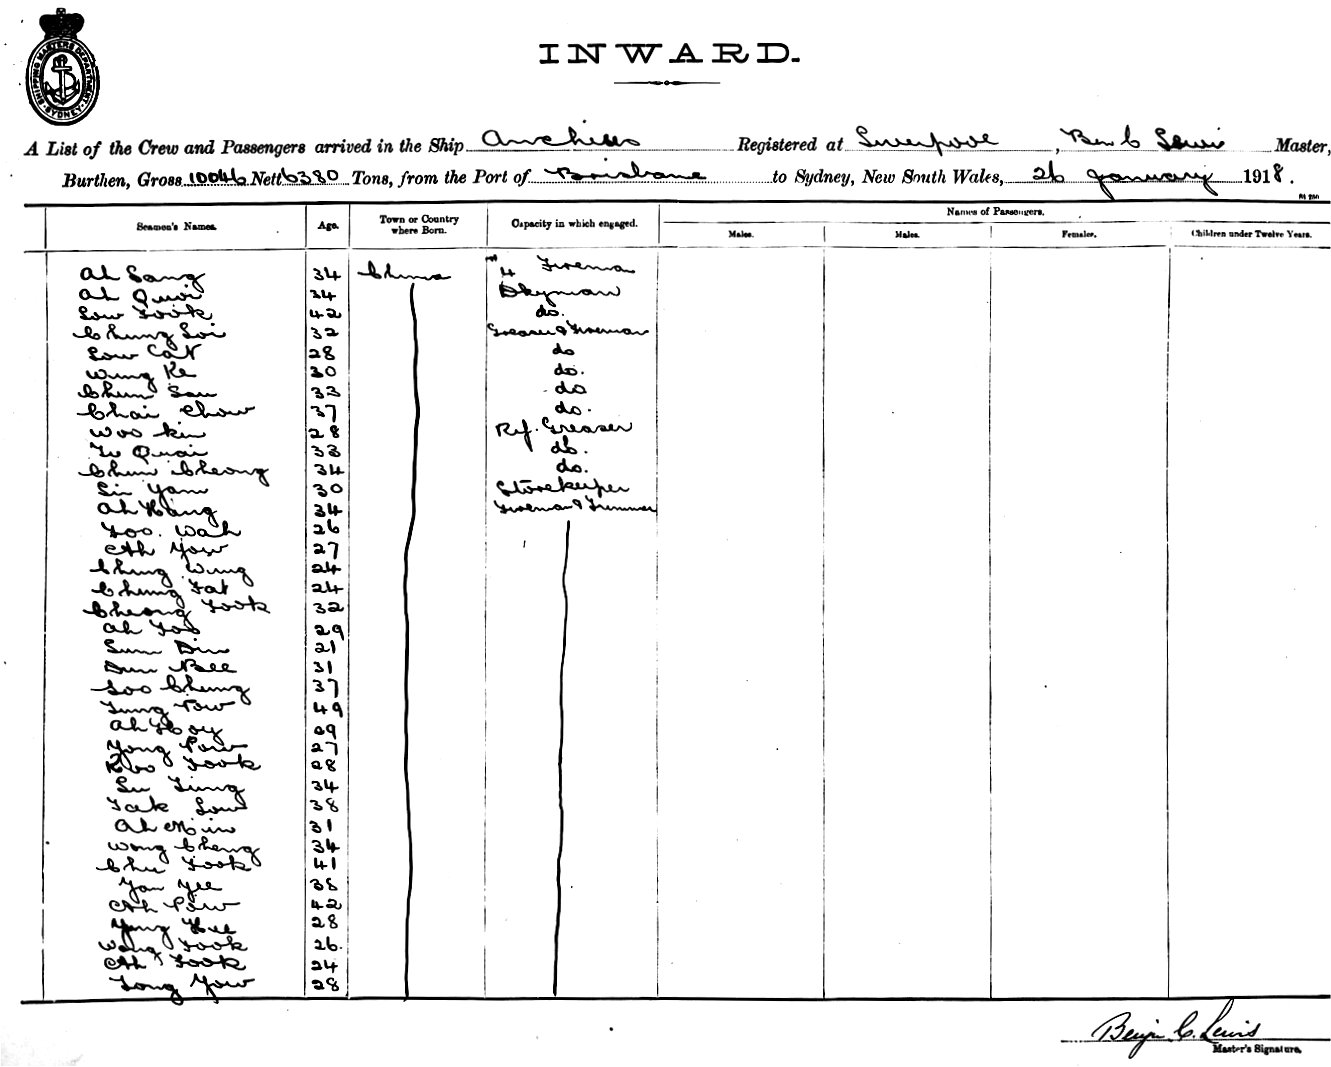 SHIPPING MASTERS DEPARTMENT SYDNEY
INWARD.
A List of the Crew and Passengers arrived in the Ship Anchises Registered at Liverpool, Ben C Lewis Master,
Burthen, Gross 10046 Nett 6380 Tons, from the Port of Brisbane to Sydney, New South Wales, 26 January 1918.
Seamen's Names. Age. Town or Country where Born. Capacity in which engaged. Names of Passengers.
Males. Males. Females. Children under Twelve Years.
Ah Sang 34 China 4 Fireman
Ah Quoi 34 Dkyman
Low Fook 42 do.
Chung Loi 32 Greaser & Fireman
Low Cat 28 do
Wing Ke 30 do.
Chun Sau 33 do
Chai Chow 37 do.
Woo Kin 28 Ref. Greaser
Quai 33 do.
Chun Cheong 34 do.
Yam 30 Storekeeper
Ah Hang 34 Fireman & Trimmer
Foo. Wah 26
Ah Yow 27
Ching Wing 24
Chung Fat 24
Cheong Fook 32
Ah Foo 29
Sum Din 21
Dun Bee 31
Soo Chung 37
Tung Bow 49
Ah Hoy 29
Yong Pow 27
Koo Fook 28
Su Tung 34
Tak Low 38
Ah Min 31
Wong Cheng 34
Chu Fook 41
Yan Yee 38
Ah Pow 42
Yung Hee 28
Wong Fook 26.
Ah Fook 24
Tong Yow 28
Benjn C. Lewis
Master's Signature.